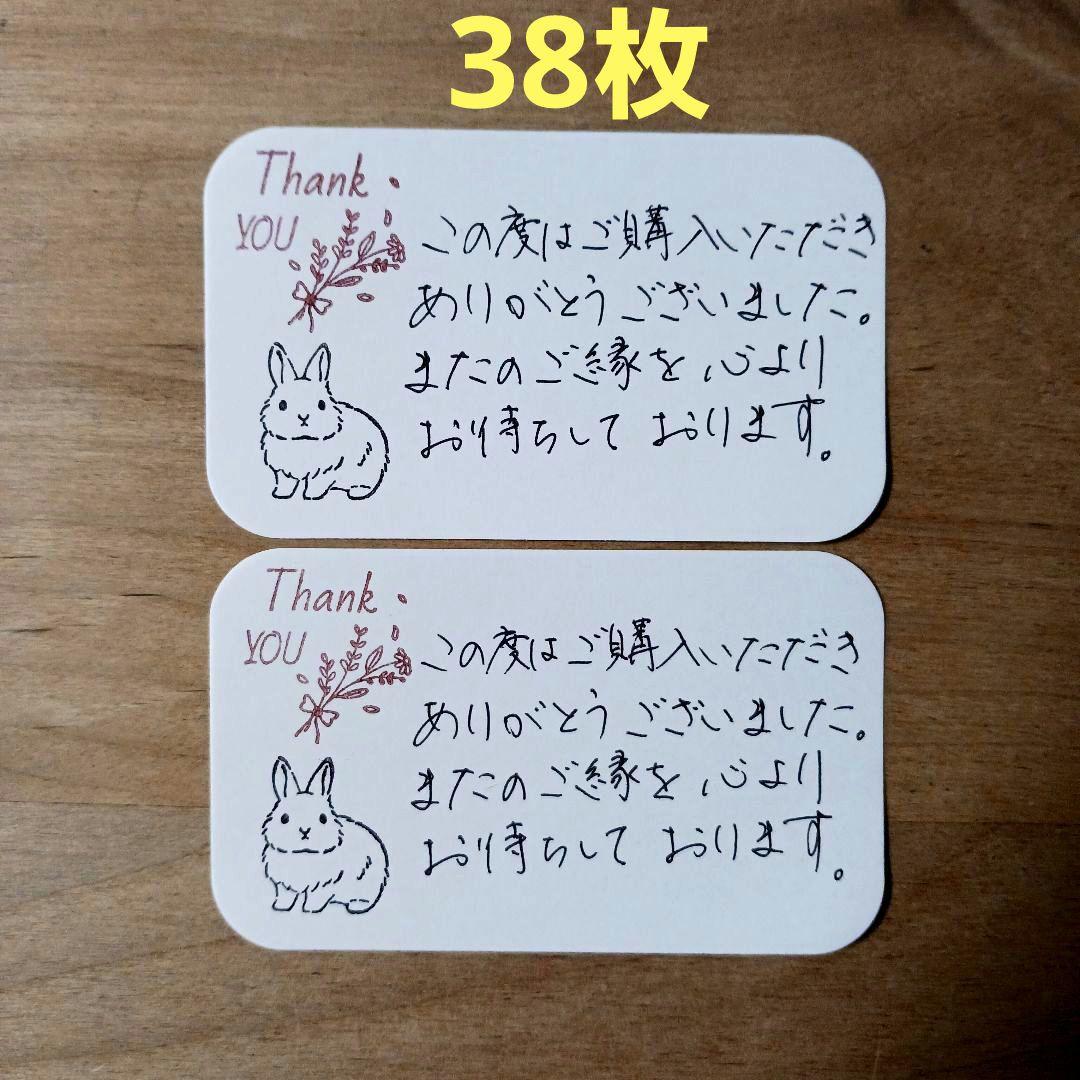 38枚
Thank
YOU
この度はご購入いただき
ありがとうございました。
またのご縁を心より
お待ちしております。
Thank
YOU
この度はご購入いただき
ありがとうございました。
またのご縁を心より
お待ちしております。